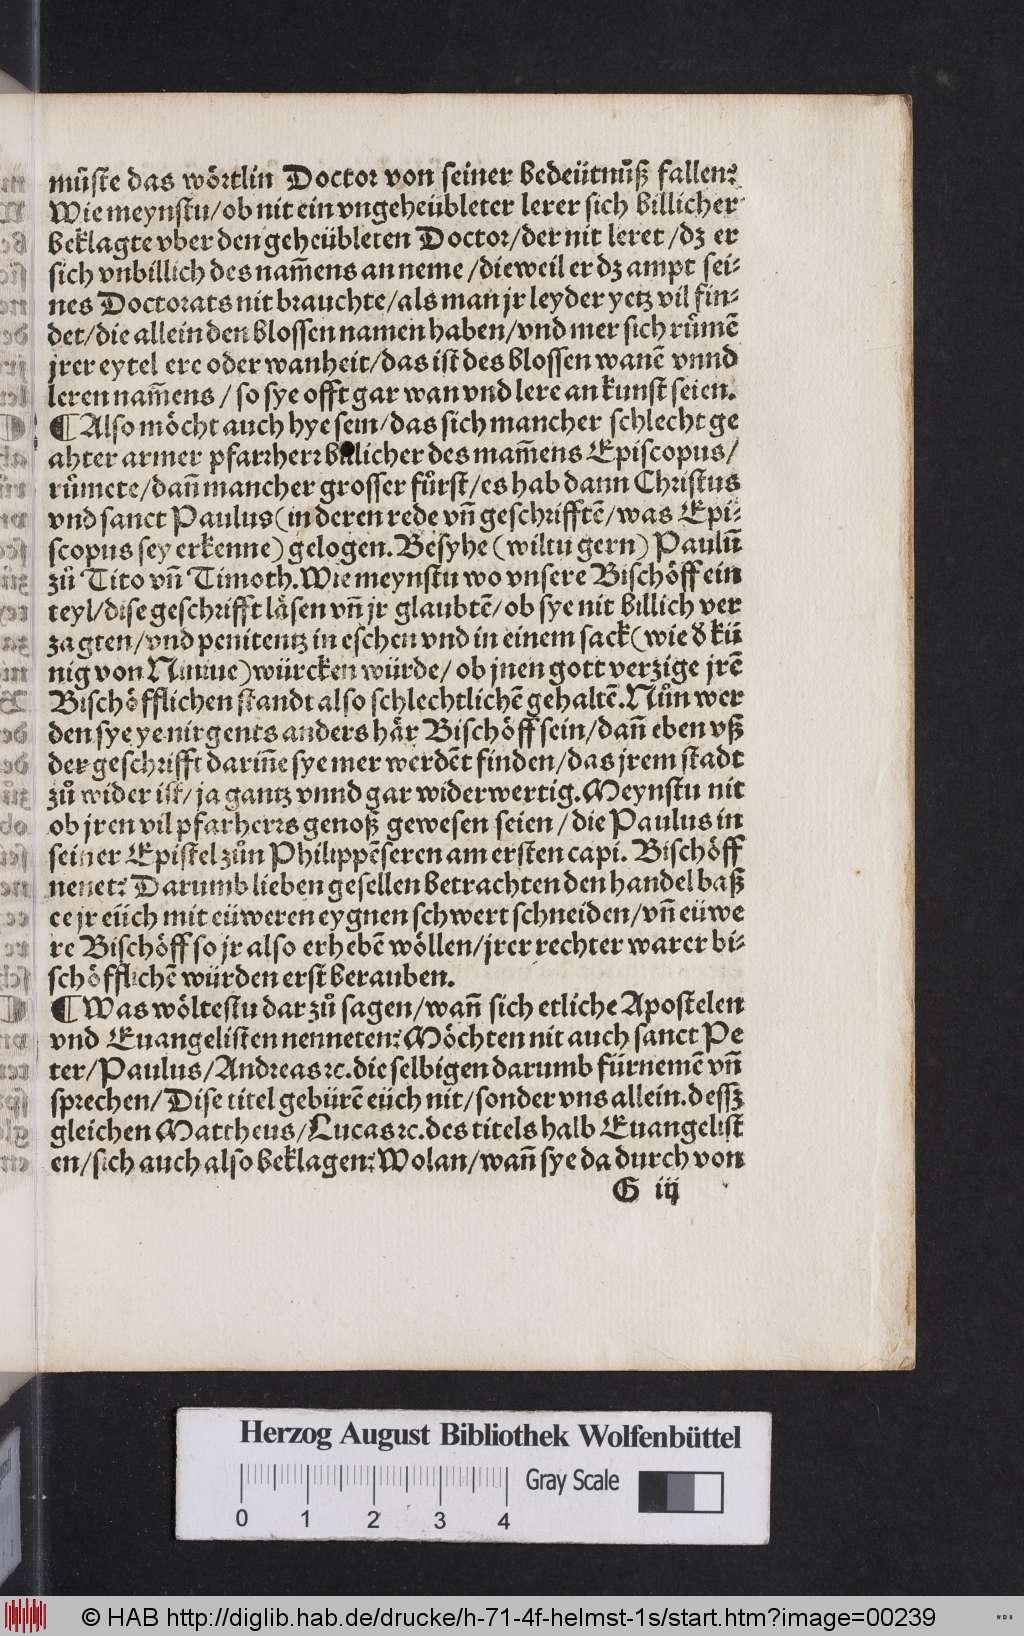 můste das wörtlin Doctor von seiner bedeütnůß fallen?
Wie meynstu/ ob nit ein vngeheübleter lerer sich billicher
beklagte vber den geheübleten Doctor/ der nit leret / dz er
sich vnbillich des nam̄ens an neme / dieweil er dz ampt sei⸗
nes Doctorats nit brauchte/ als man jr leyder yetz vil fin⸗
det/ die allein den blossen namen haben/ vnd mer sich růmē
jrer eytel ere oder wanheit/ das ist des blossen wanē vnnd
leren nam̄ens / so sye offt gar wan vnd lere an kunst seien.
¶ Also möcht auch hye sein/ das sich mancher schlecht ge
ahter armer pfarrherr billicher des mam̄ens Episcopus/
růmete/ dan̄ mancher grosser fůrst/ es hab dann Christus
vnd sanct Paulus (in deren rede vn̄ geschrifftē/ was Epi⸗
scopus sey erkenne) gelogen. Besyhe (wiltu gern) Paulū
zů Tito vn̄ Timoth. Wie meynstu wo vnsere Bischöff ein
teyl/ dise geschrifft läsen vn̄ jr glaubtē/ ob sye nit billich ver
zagten/ vnd penitentz in eschen vnd in einem sack (wie ď kü
nig von Niniue) würcken würde/ ob jnen gott verzige jrē
Bischöfflichen standt also schlechtlichē gehaltē. Nůn wer
den sye ye nirgents anders här Bischöff sein/ dan̄ eben vß
der geschrifft darin̄e sye mer werdēt finden/ das jrem stadt
zů wider ist/ ja gantz vnnd gar widerwertig. Meynstu nit
ob jren vil pfarherrs genoß gewesen seien / die Paulus in
seiner Epistel zůn Philippēseren am ersten capi. Bischöff
nenet? Darumb lieben gesellen betrachten den handel baß
ee jr eüch mit eüweren eygnen schwert schneiden/ vn̄ eüwe
re Bischöff so jr also erhebē wöllen/ jrer rechter warer bi⸗
schöfflichē würden erst berauben.
¶ Was wöltestu dar zů sagen/ wan̄ sich etliche Apostelen
vnd Euangelisten nenneten? Möchten nit auch sanct Pe
ter/ Paulus/ Andreas ꝛc. die selbigen darumb fürnemē vn̄
sprechen/ Dise titel gebürē eüch nit/ sonder vns allein. dessz
gleichen Mattheus/ Lucas ꝛc. des titels halb Euangelist
en/ sich auch also beklagen? Wolan/ wan̄ sye da durch von
G iij
Herzog August Bibliothek Wolfenbüttel
Gray Scale
0 1 2 3 4
© HAB http://diglib.hab.de/drucke/h-71-4f-helmst-1s/start.htm?image=00239